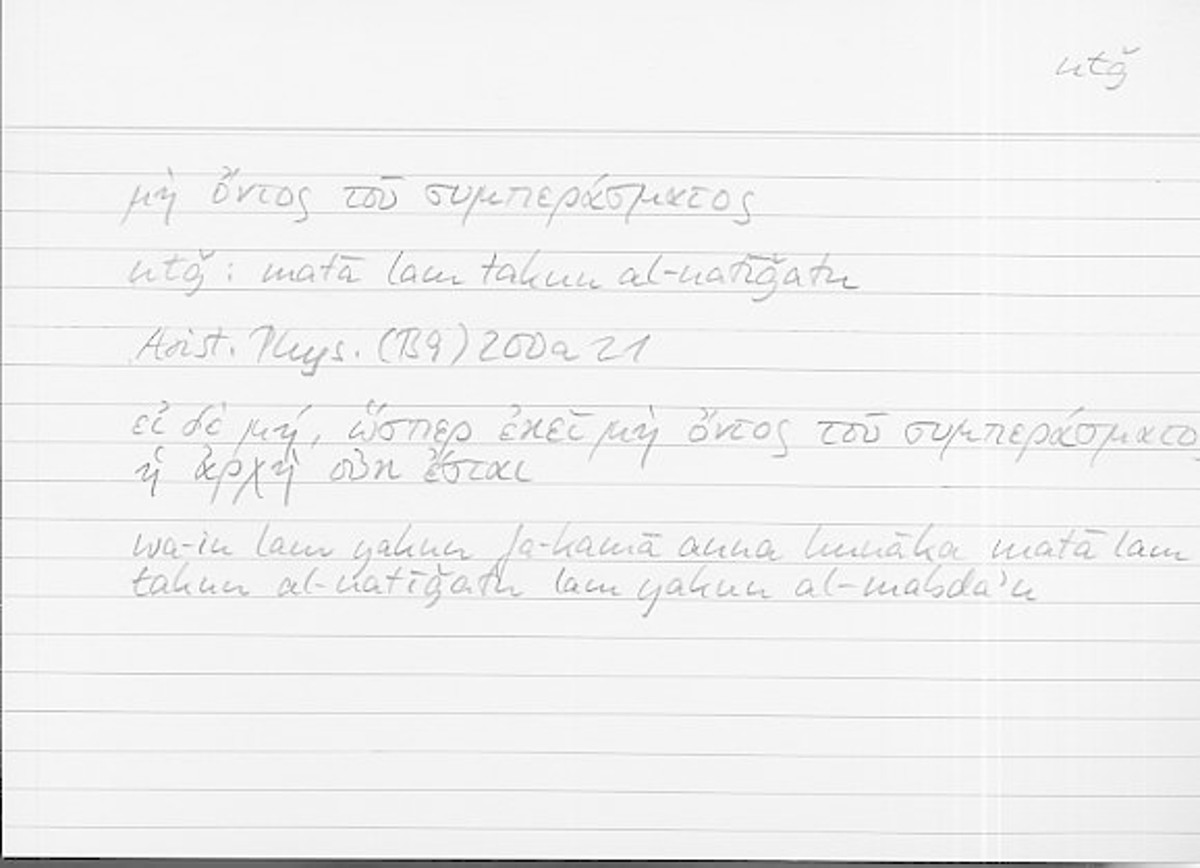 ntǧ
μὴ ὄντος τοῦ συμπεράσματος
ntǧ: matā lam takun al-natīǧatu
Arist. Phys. (B9) 200a21
εἰ δὲ μή, ὥσπερ ἐκεῖ μὴ ὄντος τοῦ συμπεράσματος
ἡ ἀρχὴ οὐκ ἔσται
wa-in lam yakun fa-kamā anna hunāka matā lam
takun al-natīǧatu lam yakun al-mabda'u